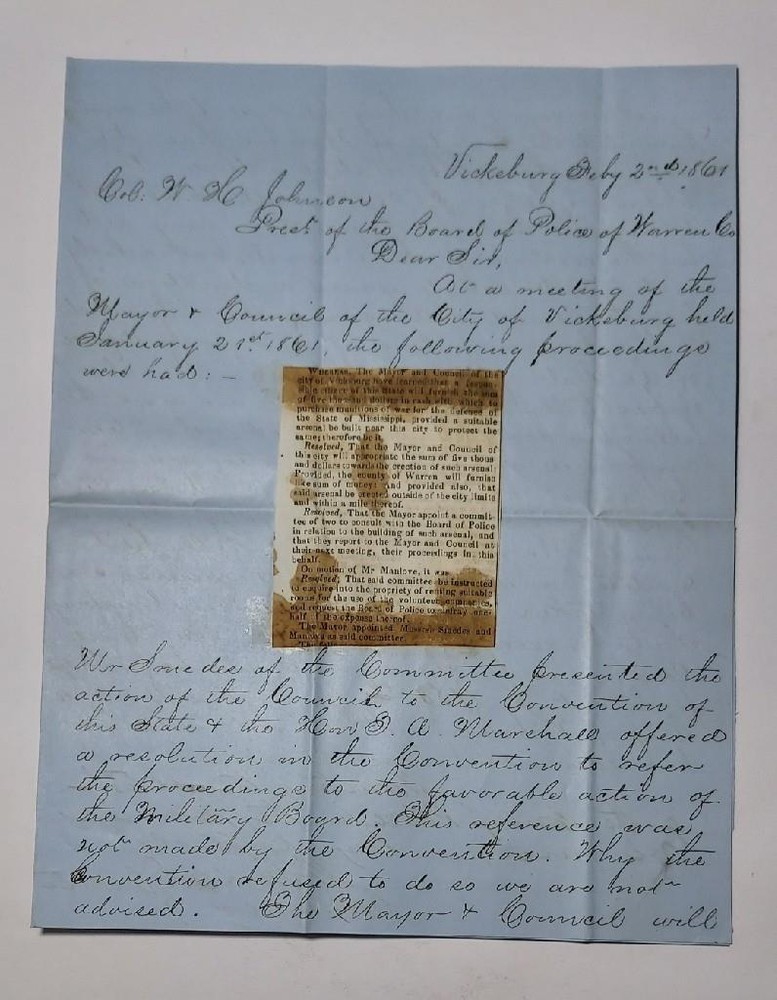 Vicksburg Feby 2nd 1861
Col: W. H. Johnson
Prest. of the Board of Police of Warren Co
Dear Sir,
At a meeting of the
Mayor & Council of the City of Vicksburg held
January 21st 1861, the following proceedings
were had: –
WHEREAS, The Mayor and Council of the
city of Vicksburg have learned that a
citizen of this State will furnish the sum
of five thousand dollars in cash with which to
purchase munitions of war for the defense of
the State of Mississippi, provided a suitable
arsenal be built near this city to protect the
same; therefore be it
Resolved, That the Mayor and Council of
this city will appropriate the sum of five thous
and dollars towards the erection of such arsenal:
Provided, the county of Warren will furnish
like sum of money; And provided also, that
said arsenal be erected outside of the city limits
and within a mile thereof.
Resolved, That the Mayor appoint a commit-
tee of two to consult with the Board of Police
in relation to the building of such arsenal, and
that they report to the Mayor and Council at
their next meeting, their proceedings in this
behalf.
On motion of Mr Manlove, it was
Resolved, That said committee be instructed
to enquire into the propriety of renting suitable
rooms for the use of the volunteer companies,
and request the Board of Police to defray one-
half of the expense thereof.
The Mayor appointed Messrs Smedes and
Manlove as said committee.
Mr Smedes of the Committee presented the
action of the Council to the Convention of
this State & the Hon T. A. Marshall offered
a resolution in the Convention to refer
the proceedings to the favorable action of
the Military Board. This reference was
not made by the Convention. Why the
Convention refused to do so we are not
advised. The Mayor & Council will